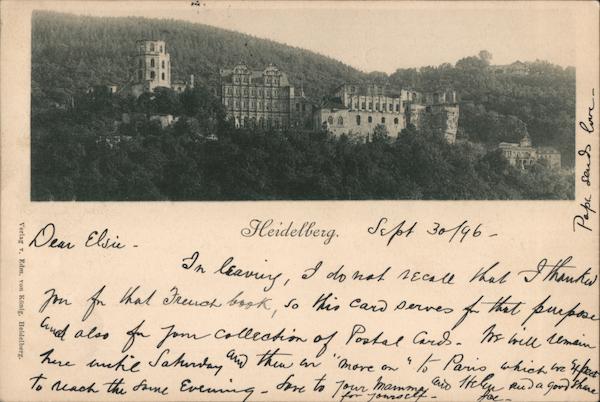 Heidelberg. Sept 30/96 -
Dear Elsie -
In leaving, I do not recall that I thanked
you for that French book, so this card serves for that purpose
and also for your collection of Postal Cards. We will remain
here until Saturday and then we "move on" to Paris which we expect
to reach the same Evening - Love to your Mamma and Helen and a good share
for yourself - Joe -
Papa sends love -
Verlag v. Edm. von König, Heidelberg.